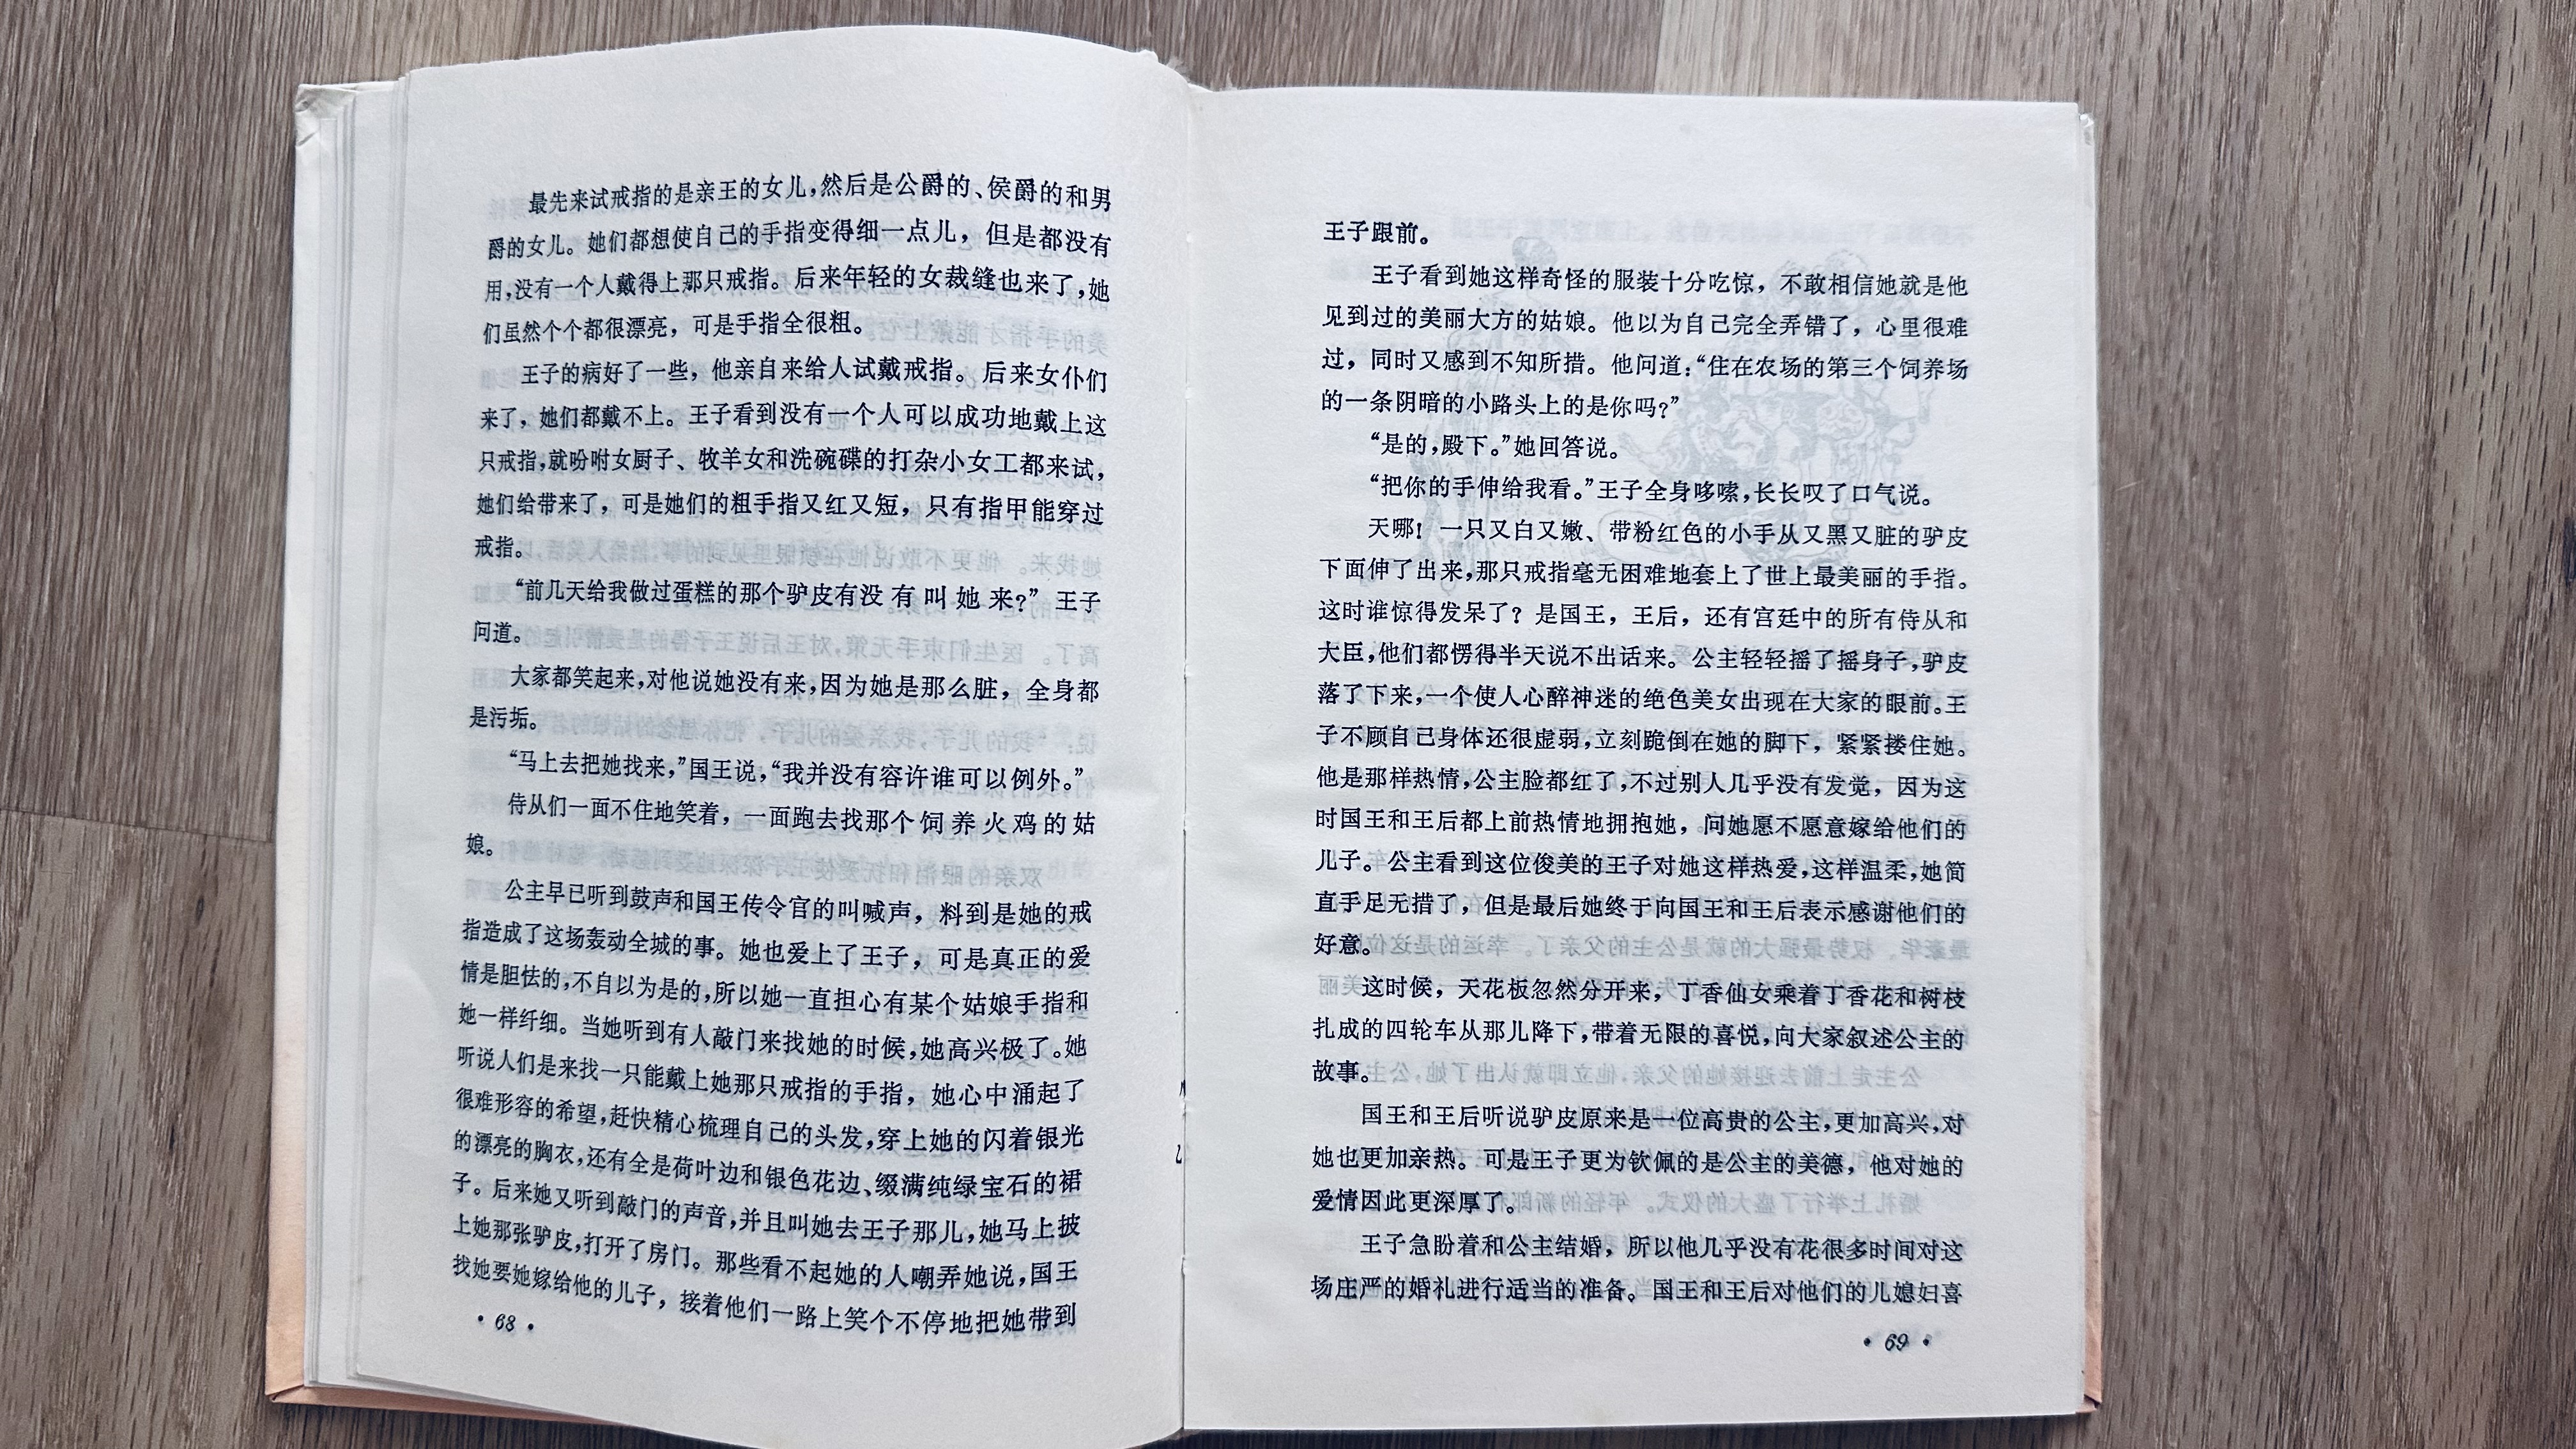 最先来试戒指的是亲王的女儿，然后是公爵的、侯爵的和男
爵的女儿。她们都想使自己的手指变得细一点儿，但是都没有
用，没有一个人戴得上那只戒指。后来年轻的女裁缝也来了，她
们虽然个个都很漂亮，可是手指全很粗。
王子的病好了一些，他亲自来给人试戴戒指。后来女仆们
来了，她们都戴不上。王子看到没有一个人可以成功地戴上这
只戒指，就吩咐女厨子、牧羊女和洗碗碟的打杂小女工都来试，
她们给带来了，可是她们的粗手指又红又短，只有指甲能穿过
戒指。
“前几天给我做过蛋糕的那个驴皮有没有叫她来？”王子
问道。
大家都笑起来，对他说她没有来，因为她是那么脏，全身都
是污垢。
“马上去把她找来，”国王说，“我并没有容许谁可以例外。”
侍从们一面不住地笑着，一面跑去找那个饲养火鸡的姑
娘。
公主早已听到鼓声和国王传令官的叫喊声，料到是她的戒
指造成了这场轰动全城的事。她也爱上了王子，可是真正的爱
情是胆怯的，不自以为是的，所以她一直担心有某个姑娘手指和
她一样纤细。当她听到有人敲门来找她的时候，她高兴极了。她
听说人们是来找一只能戴上她那只戒指的手指，她心中涌起了
很难形容的希望，赶快精心梳理自己的头发，穿上她的闪着银光
的漂亮的胸衣，还有全是荷叶边和银色花边、缀满纯绿宝石的裙
子。后来她又听到敲门的声音，并且叫她去王子那儿，她马上披
上她那张驴皮，打开了房门。那些看不起她的人嘲弄她说，国王
找她要她嫁给他的儿子，接着他们一路上笑个不停地把她带到
• 68 •
王子跟前。
王子看到她这样奇怪的服装十分吃惊，不敢相信她就是他
见到过的美丽大方的姑娘。他以为自己完全弄错了，心里很难
过，同时又感到不知所措。他问道：“住在农场的第三个饲养场
的一条阴暗的小路头上的是你吗？”
“是的，殿下。”她回答说。
“把你的手伸给我看。”王子全身哆嗦，长长叹了口气说。
天哪！一只又白又嫩、带粉红色的小手从又黑又脏的驴皮
下面伸了出来，那只戒指毫无困难地套上了世上最美丽的手指。
这时谁惊得发呆了？是国王，王后，还有宫廷中的所有侍从和
大臣，他们都愣得半天说不出话来。公主轻轻摇了摇身子，驴皮
落了下来，一个使人心醉神迷的绝色美女出现在大家的眼前。王
子不顾自己身体还很虚弱，立刻跪倒在她的脚下，紧紧搂住她。
他是那样热情，公主脸都红了，不过别人几乎没有发觉，因为这
时国王和王后都上前热情地拥抱她，问她愿不愿意嫁给他们的
儿子。公主看到这位俊美的王子对她这样热爱，这样温柔，她简
直手足无措了，但是最后她终于向国王和王后表示感谢他们的
好意。
这时候，天花板忽然分开来，丁香仙女乘着丁香花和树枝
扎成的四轮车从那儿降下，带着无限的喜悦，向大家叙述公主的
故事。
国王和王后听说驴皮原来是一位高贵的公主，更加高兴，对
她也更加亲热。可是王子更为钦佩的是公主的美德，他对她的
爱情因此更深厚了。
王子急盼着和公主结婚，所以他几乎没有花很多时间对这
场庄严的婚礼进行适当的准备。国王和王后对他们的儿媳妇喜
• 69 •